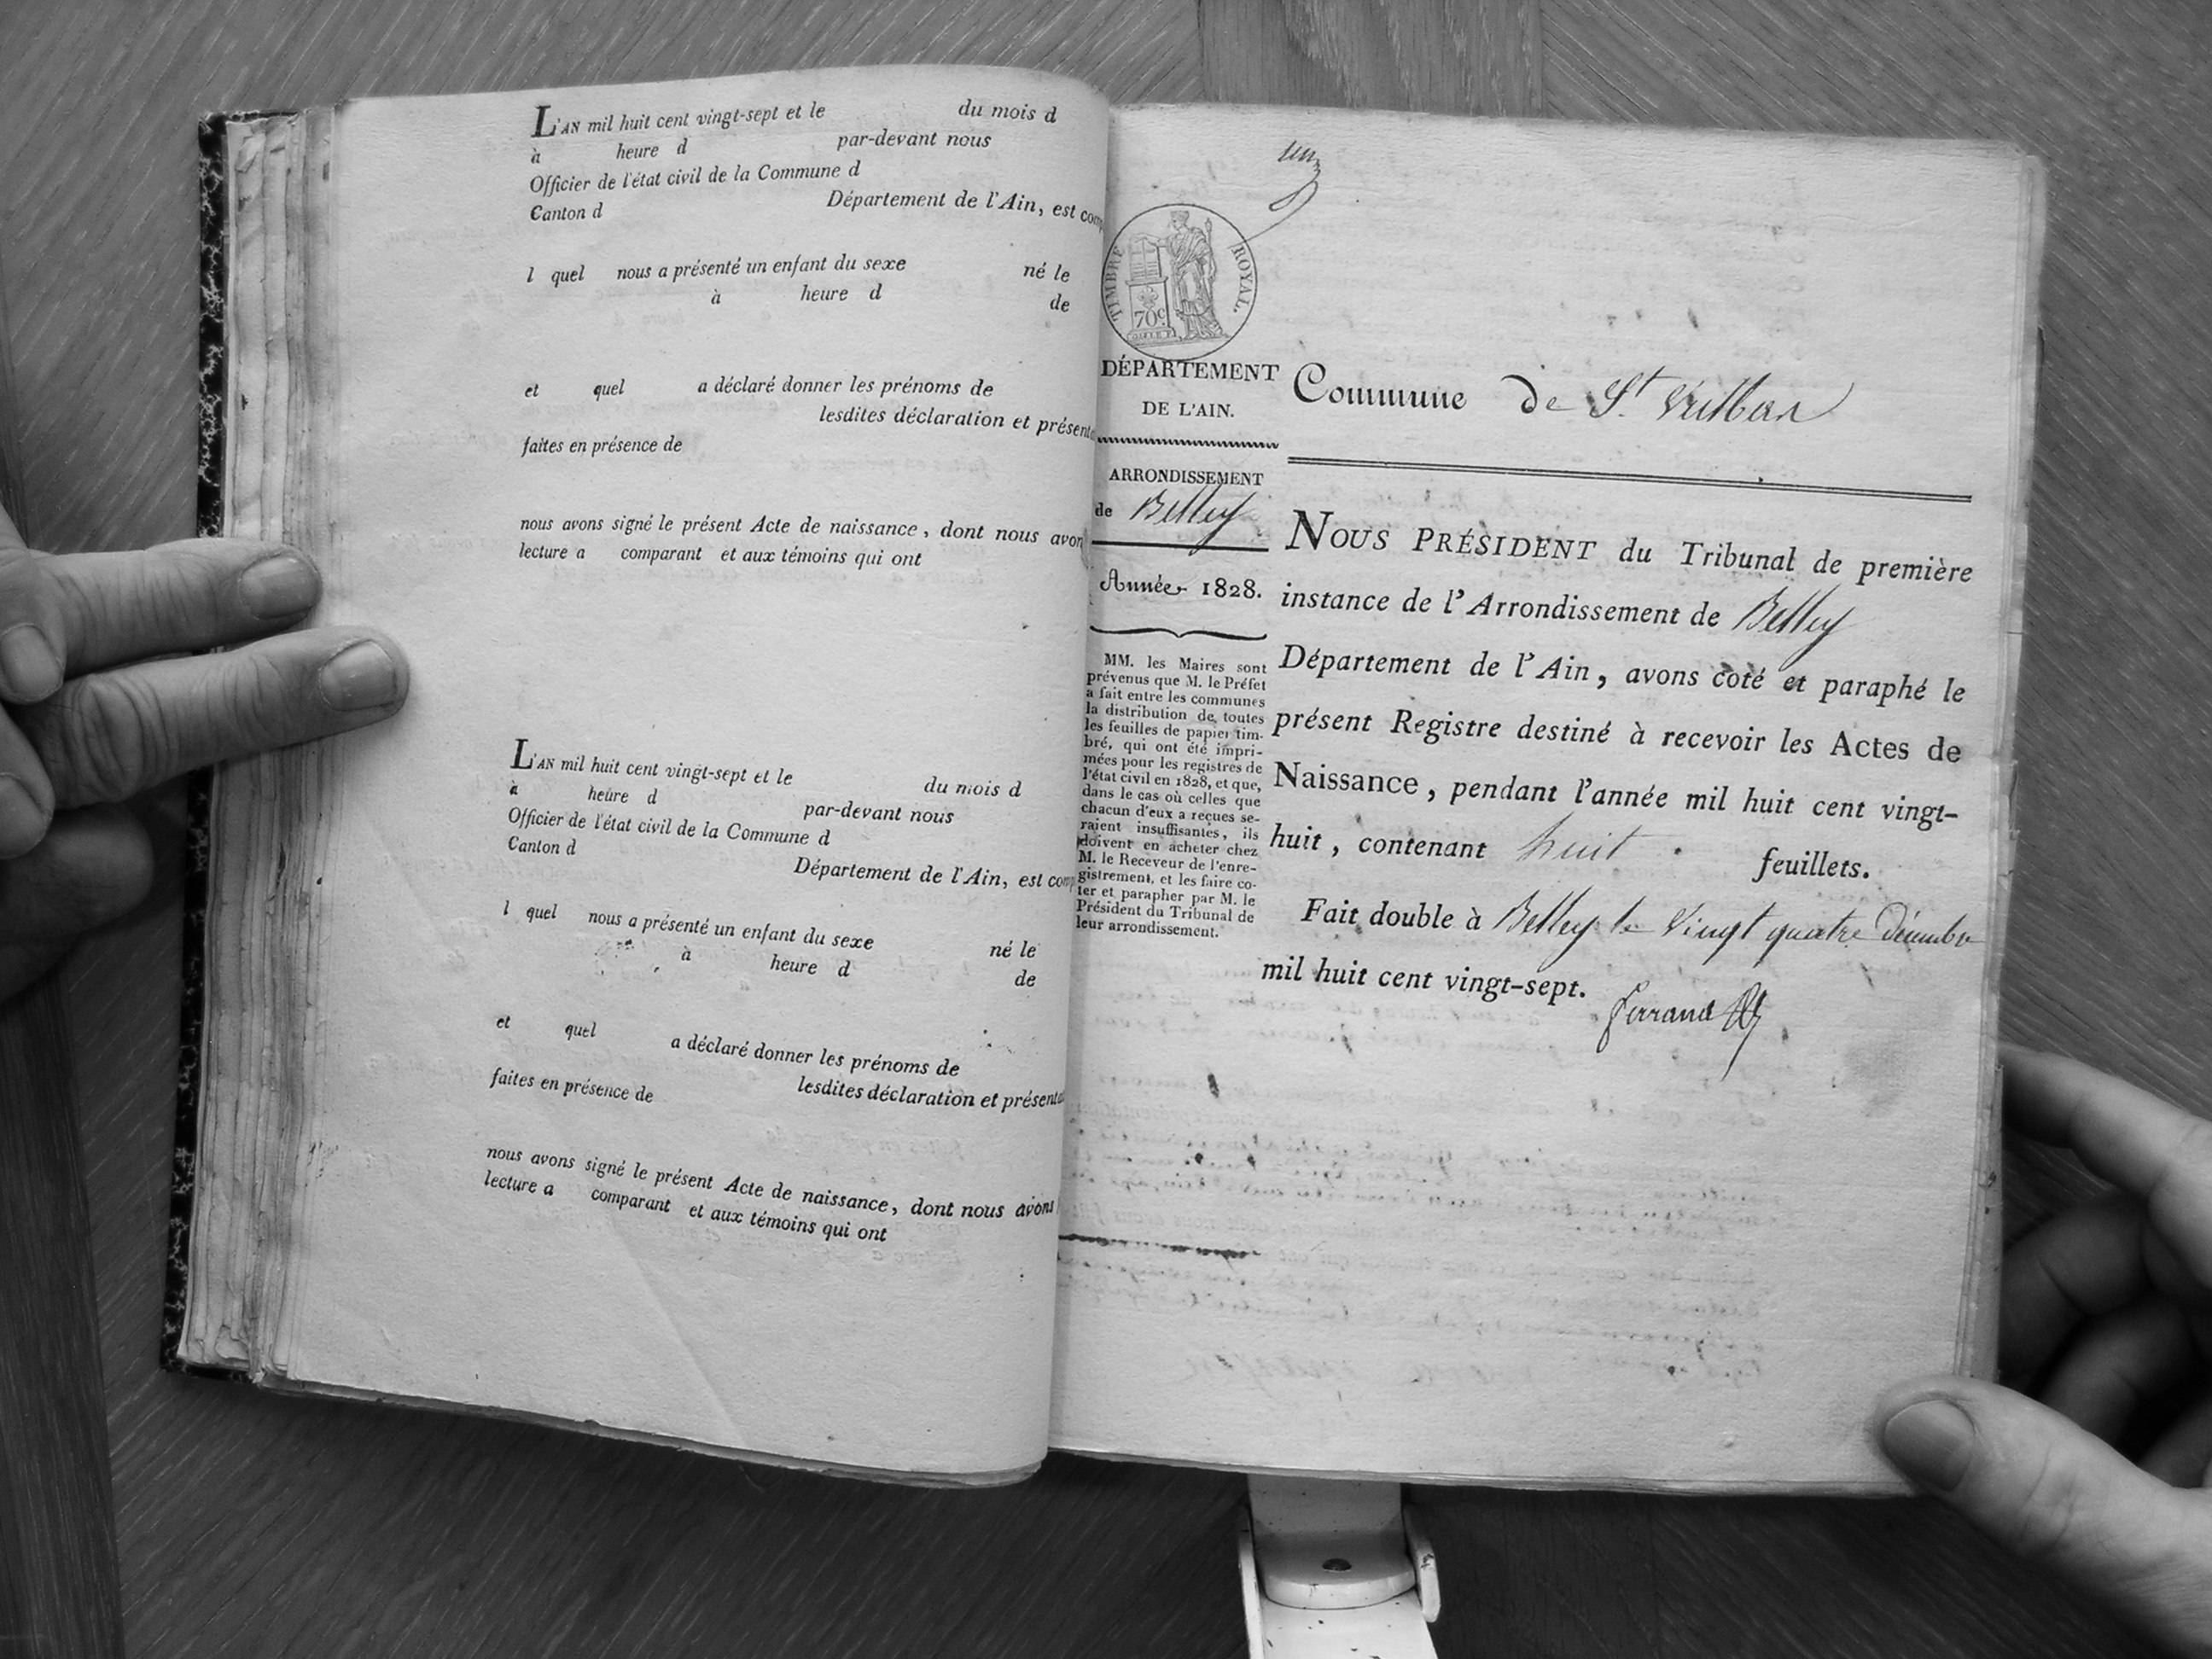 L'AN mil huit cent vingt-sept et le du mois d
à heure d par-devant nous
Officier de l'état civil de la Commune d
Canton d Département de l'Ain, est com
l quel nous a présenté un enfant du sexe né le
à heure d de
et quel a déclaré donner les prénoms de
lesdites déclaration et présent
faites en présence de
nous avons signé le présent Acte de naissance, dont nous avon
lecture a comparant et aux témoins qui ont
L'AN mil huit cent vingt-sept et le du mois d
à heure d par-devant nous
Officier de l'état civil de la Commune d
Canton d Département de l'Ain, est comp
l quel nous a présenté un enfant du sexe né le
à heure d de
et quel a déclaré donner les prénoms de
lesdites déclaration et présenta
faites en présence de
nous avons signé le présent Acte de naissance, dont nous avons
lecture a comparant et aux témoins qui ont
un
TIMBRE ROYAL.
70c
DÉPARTEMENT
DE L'AIN.
ARRONDISSEMENT
de Belley
Année 1828.
MM. les Maires sont
prévenus que M. le Préfet
a fait entre les communes
la distribution de toutes
les feuilles de papier tim-
bré, qui ont été impri-
mées pour les registres de
l'état civil en 1828, et que,
dans le cas où celles que
chacun d'eux a reçues se-
raient insuffisantes, ils
doivent en acheter chez
M. le Receveur de l'enre-
gistrement, et les faire co-
ter et parapher par M. le
Président du Tribunal de
leur arrondissement.
Commune de St
NOUS PRÉSIDENT du Tribunal de première
instance de l'Arrondissement de Belley
Département de l'Ain, avons coté et paraphé le
présent Registre destiné à recevoir les Actes de
Naissance, pendant l'année mil huit cent vingt-
huit, contenant huit feuillets.
Fait double à Belley le vingt quatre décembre
mil huit cent vingt-sept.
ferrand